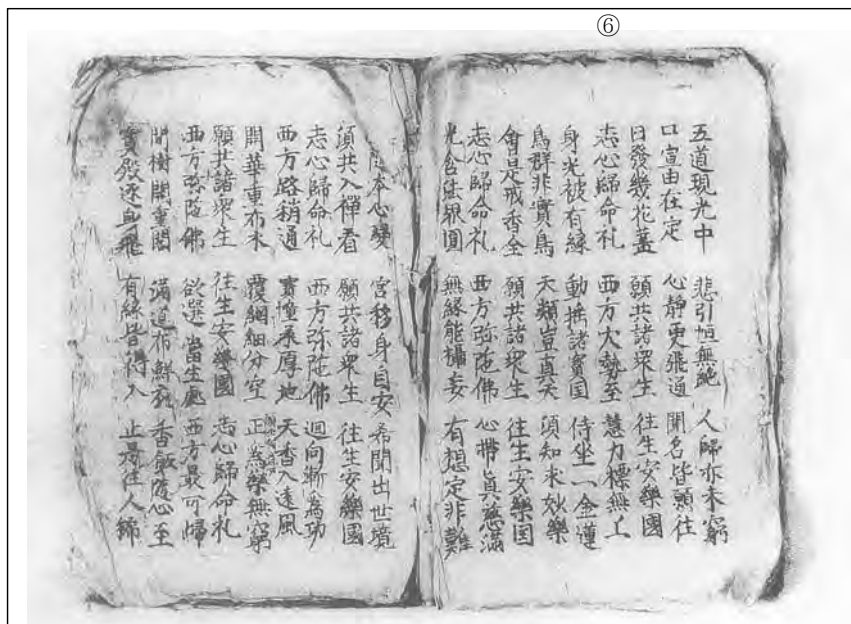 ⑥
五道現光中 悲引恒無絕 人歸亦未窮
口宣由在定 心靜更飛通 聞名皆願往
日發幾花蓋 願共諸衆生 往生安樂國
志心歸命礼 西方大勢至 慧力標無上
身光被有緣 動搖諸寶国 侍坐一金蓮
鳥群非實鳥 天類豈真天 須知求妙樂
會是戒香全 願共諸衆生 往生安樂国
志心歸命礼 西方弥陀佛 心帶真慈滿
光含法界圓 無緣能攝 有想定非難
本心變 宮移身自安 希聞出世境
須共入禪看 願共諸衆生 往生安樂國
志心歸命礼 西方弥陀佛 迴向漸為功
西方路稍通 寶幢承厚地 天香入遠風
開華重布水 覆網細分空 正為樂無窮
願共諸衆生 往生安樂國 志心歸命礼
西方弥陀佛 欲選當生處 西方最可歸
間樹開重閣 滿道布鮮花 香飯隨心至
寶殿逐身飛 有緣皆得入 止是往人